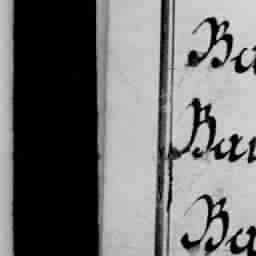 Ba
Bau
Ba